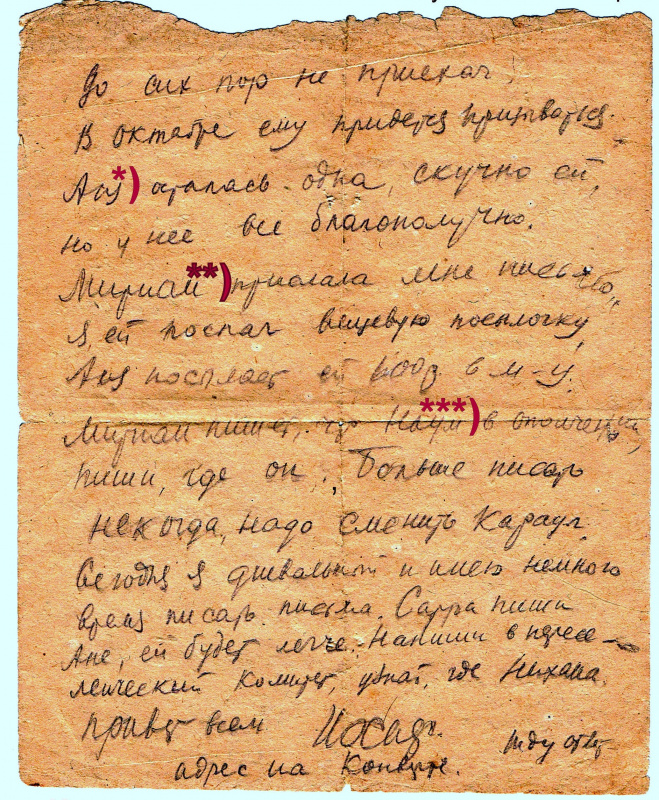 До сих пор не приехал,
В октябре ему придется призываться.
Аня *) осталась одна, скучно ей,
но у нее все благополучно.
Мириам **) прислала мне письмо,
Я ей послал вещевую посылочку,
Аня посылает ей в м-ц.
Мириам пишет, что Наум ***) в ополчении,
пиши, где он. Больше писать
некогда, надо сменить караул.
Сегодня я дневальный и имею немного
время писать письма. Сарра пиши
Ане, ей будет легче. Напиши в пересе-
ленческий комитет, узнай, где
Привет всем жду ответ
адрес на конверте.